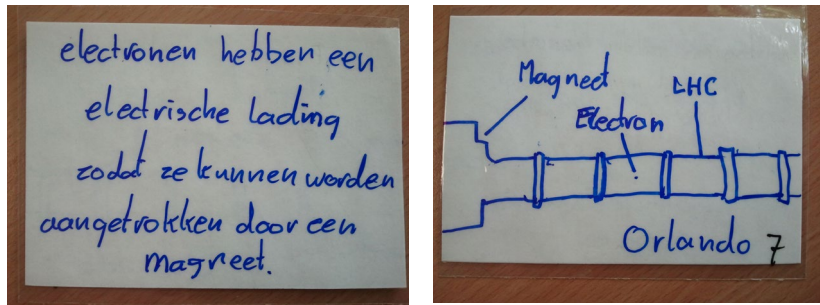 electronen hebben een
electrische lading
zodat ze kunnen worden
aangetrokken door een
magneet.
Magneet
LHC
Electron
Orlando 7